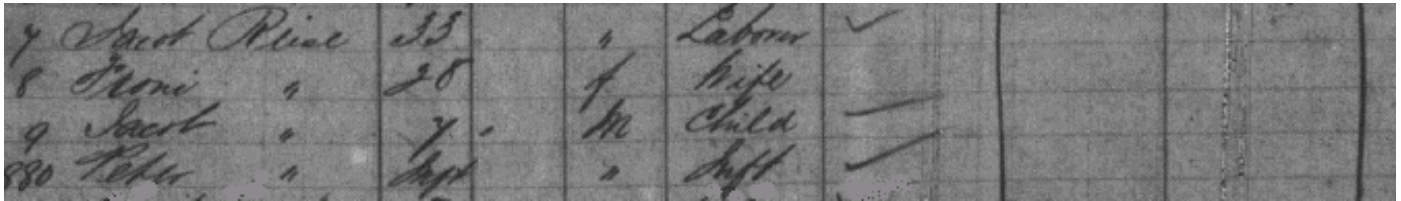 7 Jacob Reise 33 " Laborer
8 Froni " 28 f Wife
9 Jacob " 7 . M Child
880 Peter " Inft " Inft